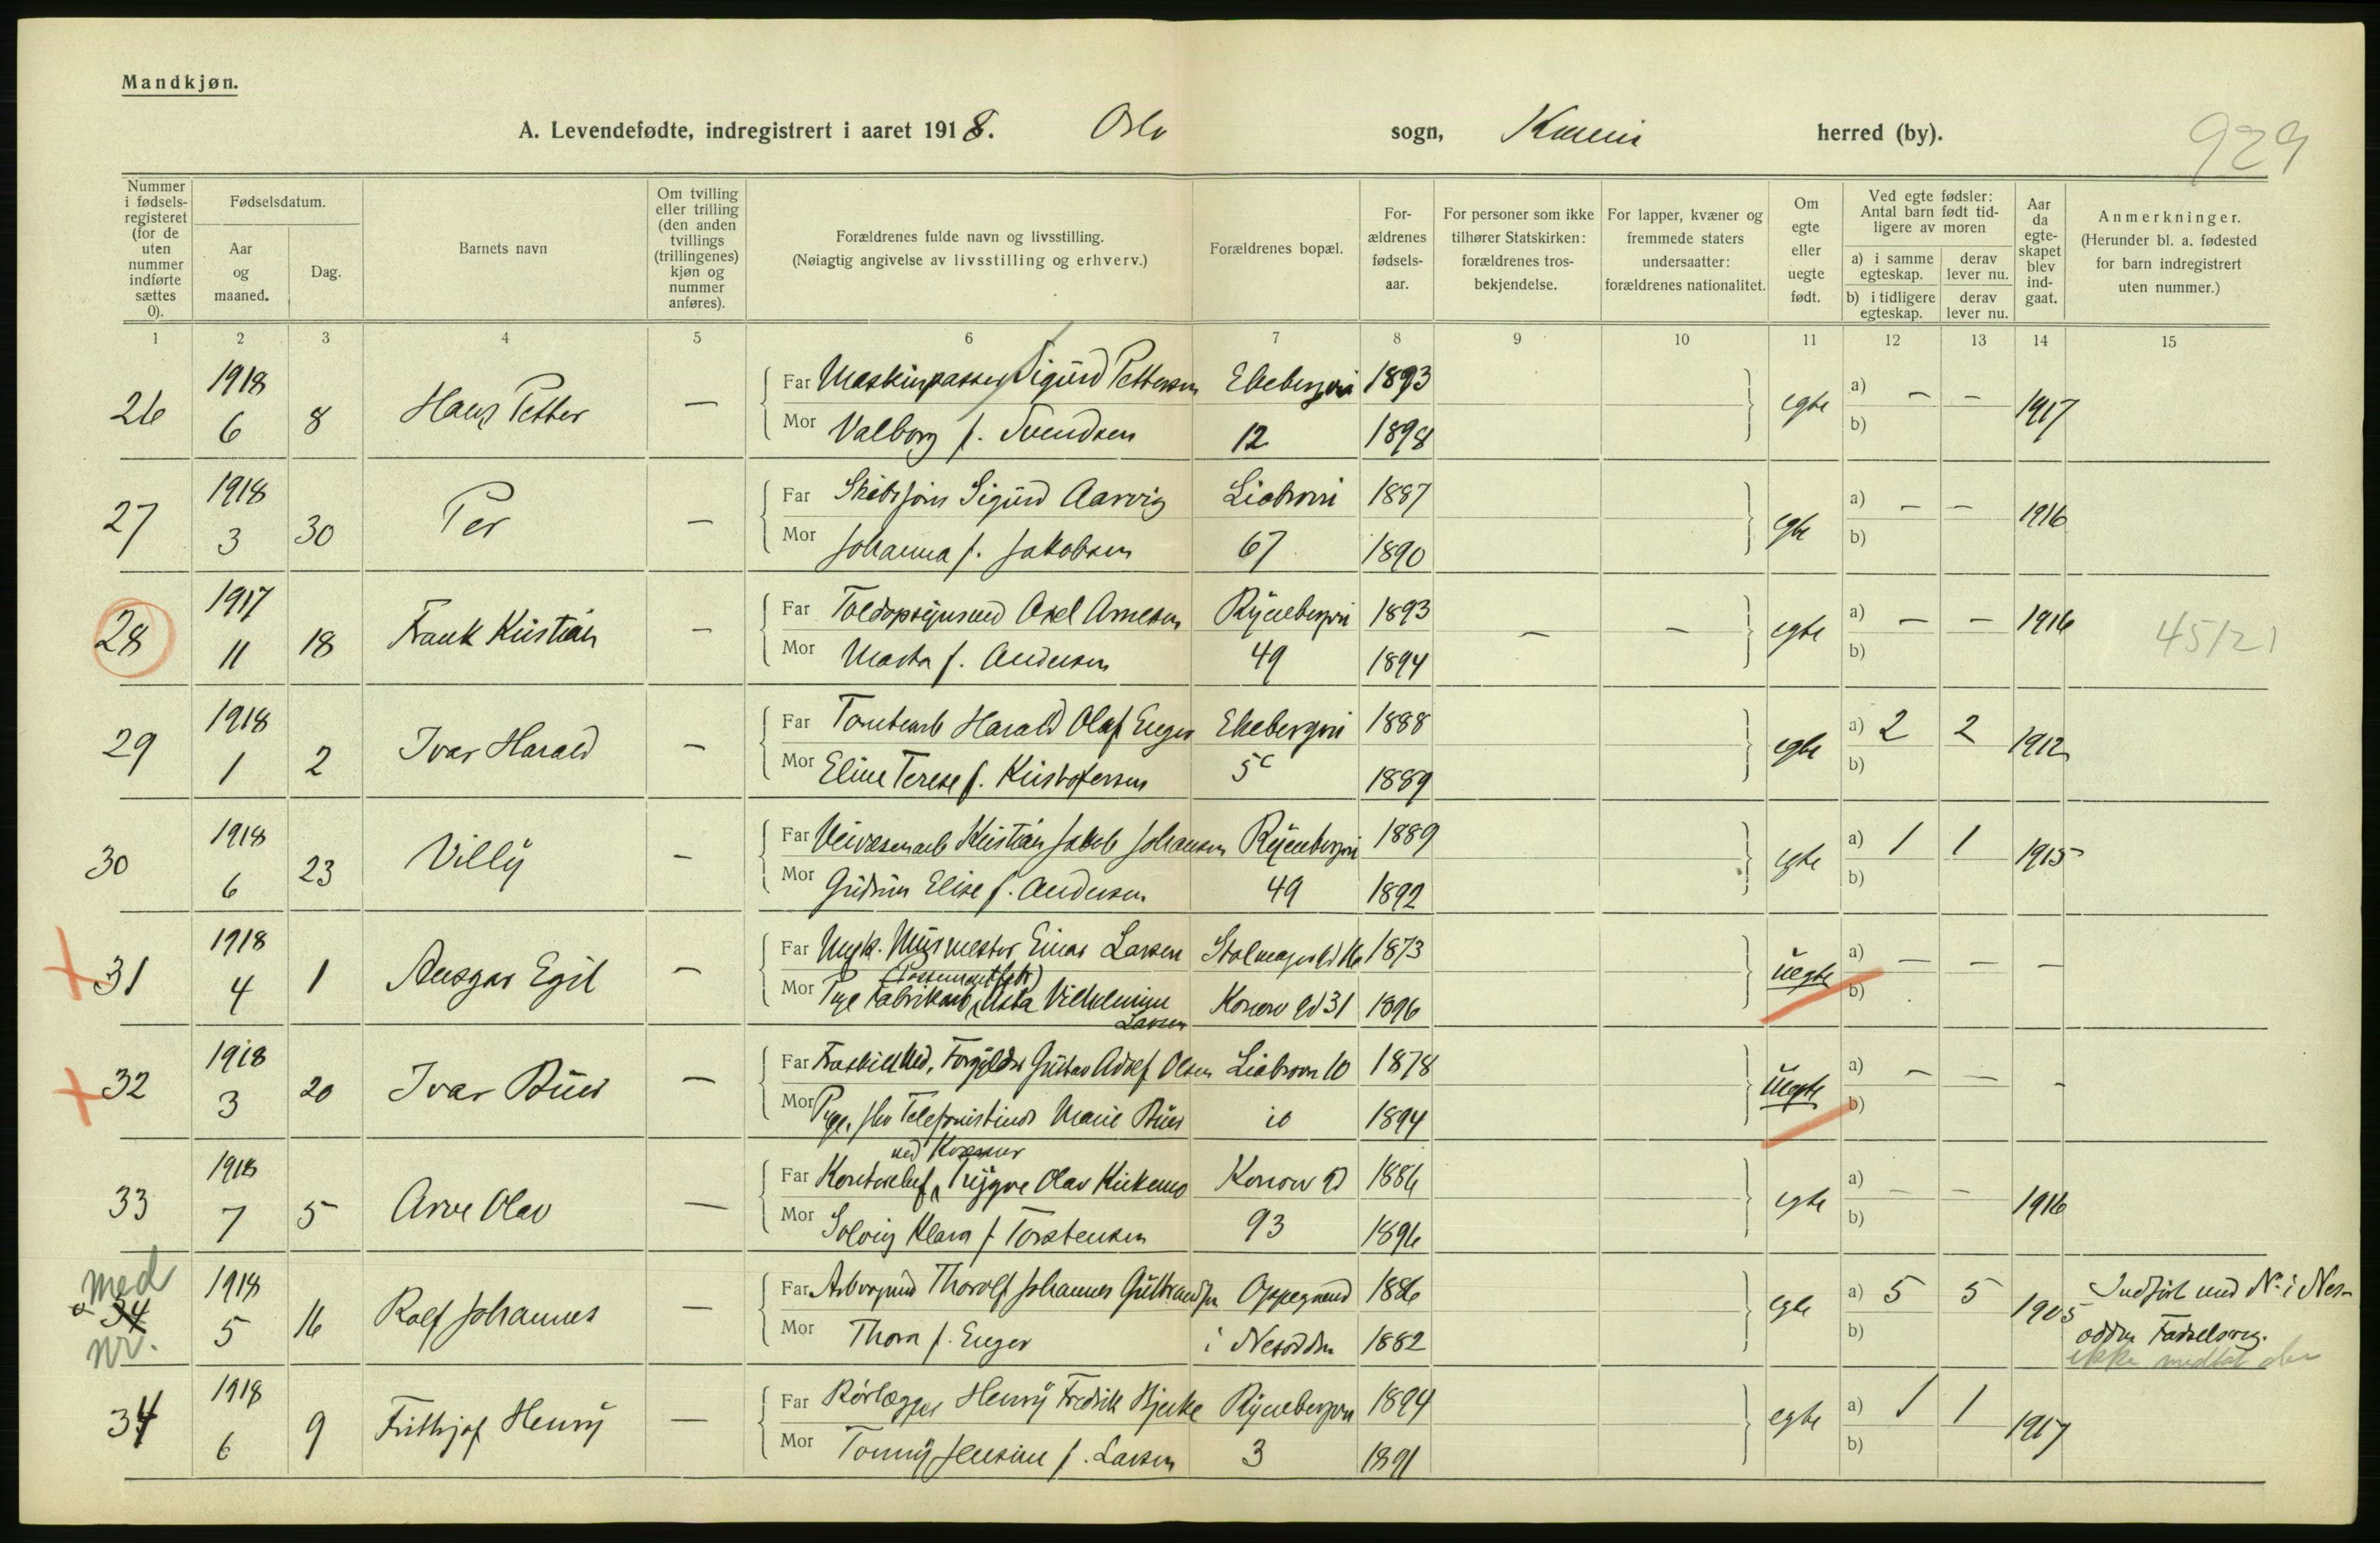 Mandkjøn.
A. Levendefødte, indregistrert i aaret 1918. Oslo sogn, herred (by).
929
Nummer i fødselsregisteret (for de uten nummer indførte sættes 0).
Fødselsdatum.
Aar og maaned.
Dag.
Barnets navn
Om tvilling eller trilling (den anden tvillings (trillingenes) kjøn og nummer anføres).
Forældrenes fulde navn og livsstilling.
(Nøiagtig angivelse av livsstilling og erhverv.)
Forældrenes bopæl.
Forældrenes fødselsaar.
For personer som ikke tilhører Statskirken: forældrenes trosbekjendelse.
For lapper, kvæner og fremmede staters undersaatter: forældrenes nationalitet.
Om egte eller uegte født.
Ved egte fødsler: Antal barn født tidligere av moren
a) i samme egteskap. derav lever nu.
b) i tidligere egteskap. derav lever nu.
Aar da egteskapet blev indgaat.
Anmerkninger.
(Herunder bl. a. fødested for barn indregistrert uten nummer.)
1 2 3 4 5 6 7 8 9 10 11 12 13 14 15
26 1918 6 8 Hans Petter — Far Maskinpasser Sigurd Pettersen Ekebergvei 1893 egte a) — — 1917
Mor Valborg f. Svendsen 12 1898 b)
27 1918 3 30 Per — Far Sigurd Aarvig 1887 egte a) — — 1916
Mor Johanna f. Jakobsen 67 1890 b)
28 1917 11 18 Frank Kristian — Far Toldopsynsmd Axel Arnesen Ryenbergvei 1893 — — egte a) — — 1916 45/21
Mor Marta f. Andersen 49 1894 b)
29 1918 1 2 Ivar Harald — Far Tomtearb Harald Olaf Enger Ekebergvei 1888 egte a) 2 2 1912
Mor Eline Terese f. Kristofersen 5c 1889 b)
30 1918 6 23 Villy — Far Veivæsenarb Kristian Jakob Johansen Ryenbergvei 1889 egte a) 1 1 1915
Mor Gudrun Elise f. Andersen 49 1892 b)
31 1918 4 1 Ansgar Egil — Far Ungk. Murmester Einar Larsen 16 1873 uegte a) — — —
Mor Pige Fabrikarb, Asta Vilhelmine Larsen Konow gd 31 1896 b)
32 1918 3 20 Ivar — Far Fraskilt Forgylder Gustav Adolf Olsen Liabrovn 10 1878 uegte a) — — -
Mor Pige, Telefonistinde Marie 10 1894 b)
33 1918 7 5 Arve Olav — Far Kontorchef, Trygve Olav Kirkemo Konow gd 1886 egte a) — — 1916
Mor Solveig Klara f Torstensen 93 1896 b)
med 34 nr. 1918 5 16 Rolf Johannes — Far Thorolf Johannes Gulbrandsen Oppegaard 1886 egte a) 5 5 1905 Indført med No i Nesodden Fødselsreg.
Mor Thora f. Enger i Nesodden 1882 b) ikke medtat der
34 1918 6 9 Frithjof Henry — Far Rørlægger Henry Fredrik Bjerke Ryenbergvn 1894 egte a) 1 1 1917
Mor Tonny Jensine f. Larsen 3 1891 b)